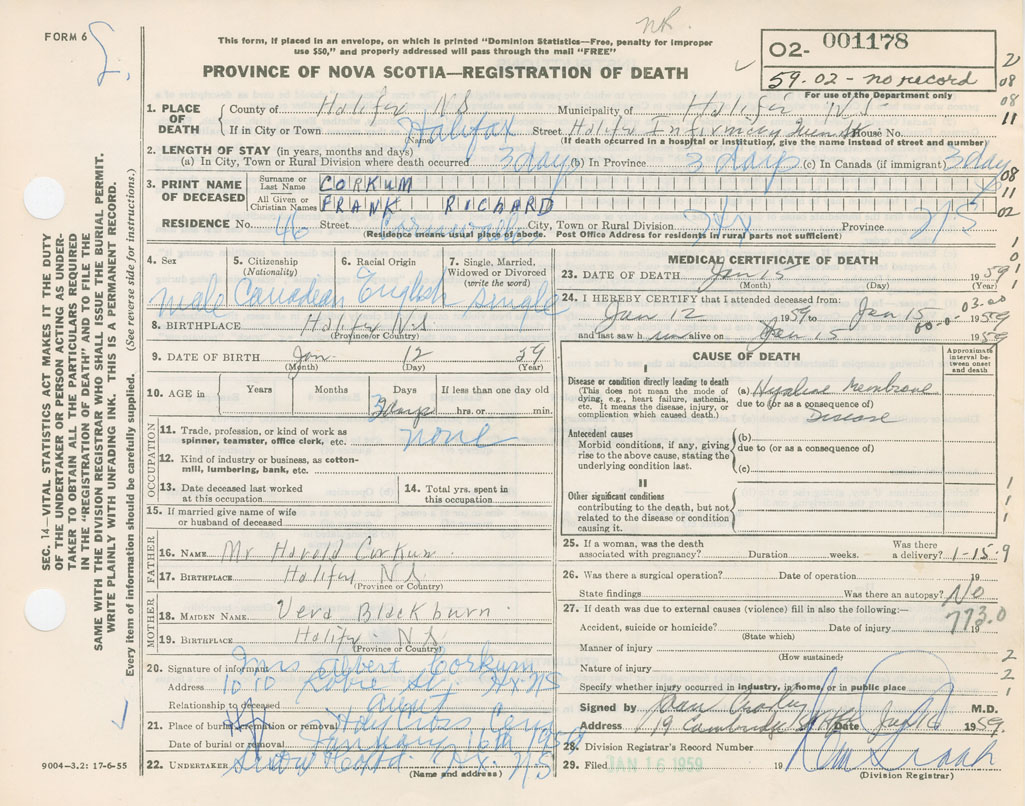 FORM 6
nR.
This form, if placed in an envelope, on which is printed "Dominion Statistics—Free, penalty for improper
use $50," and properly addressed will pass through the mail "FREE"
PROVINCE OF NOVA SCOTIA—REGISTRATION OF DEATH
02- 001178
59.02 - no record
For use of the Department only
1. PLACE OF DEATH
County of Halifax N.S Municipality of Halifax N.S-
If in City or Town Halifax Street Halifax Infirmary Queen St House No.
(Name) (If death occurred in a hospital or institution, give the name instead of street and number)
2. LENGTH OF STAY (in years, months and days)
(a) In City, Town or Rural Division where death occurred 3 days (b) In Province 3 days (c) In Canada (if immigrant) 3 days
3. PRINT NAME OF DECEASED
Surname or Last Name CORKUM
All Given or Christian Names FRANK RICHARD
RESIDENCE No. 46 Street Cornwallis City, Town or Rural Division Hfx Province NS
(Residence means usual place of abode. Post Office Address for residents in rural parts not sufficient)
4. Sex
5. Citizenship (Nationality)
6. Racial Origin
7. Single, Married, Widowed or Divorced (write the word)
male Canadian English single
8. BIRTHPLACE Halifax N.S
(Province/or Country)
9. DATE OF BIRTH Jan. 12 59
(Month) (Day) (Year)
10. AGE in Years Months Days If less than one day old
3 days hrs. or min.
OCCUPATION
11. Trade, profession, or kind of work as spinner, teamster, office clerk, etc. none
12. Kind of industry or business, as cotton-mill, lumbering, bank, etc.
13. Date deceased last worked at this occupation
14. Total yrs. spent in this occupation
15. If married give name of wife or husband of deceased
FATHER
16. NAME Mr Harold Corkum
17. BIRTHPLACE Halifax N.S
(Province or Country)
MOTHER
18. MAIDEN NAME Vera Blackburn
19. BIRTHPLACE Halifax N.S
(Province or Country)
20. Signature of informant Mrs Albert Corkum
Address 1010 Robie St. Hx NS
Relationship to deceased aunt
21. Place of burial, cremation or removal Holy Cross Cem
Date of burial or removal January 16th 1959
22. UNDERTAKER Snow Hx. NS
(Name and address)
9004—3.2: 17-6-55
MEDICAL CERTIFICATE OF DEATH
23. DATE OF DEATH Jan 15 1959
(Month) (Day) (Year)
24. I HEREBY CERTIFY that I attended deceased from:
03.00
Jan 12 1959 to Jan 15 1959
00-0-
and last saw h im alive on Jan 15 1959
CAUSE OF DEATH
Approximate interval between onset and death
I
Disease or condition directly leading to death
(This does not mean the mode of dying, e.g., heart failure, asthenia, etc. It means the disease, injury, or complication which caused death.)
(a) Hyaline Membrane
due to (or as a consequence of)
Disease
Antecedent causes
Morbid conditions, if any, giving rise to the above cause, stating the underlying condition last.
(b)
due to (or as a consequence of)
(c)
II
Other significant conditions
contributing to the death, but not related to the disease or condition causing it.
25. If a woman, was the death associated with pregnancy? Duration weeks. Was there a delivery? 1-15.9
26. Was there a surgical operation? Date of operation 19
State findings Was there an autopsy? No
27. If death was due to external causes (violence) fill in also the following:—
Accident, suicide or homicide? Date of injury 19
773.0
(State which)
Manner of injury
(How sustained)
Nature of injury
Specify whether injury occurred in industry, in home, or in public place
Signed by M.D.
Address 19 Cambridge St Hfx Date Jan 16 1959
28. Division Registrar's Record Number
29. Filed JAN 16 1959 19
(Division Registrar)
SEC. 14—VITAL STATISTICS ACT MAKES IT THE DUTY
OF THE UNDERTAKER OR PERSON ACTING AS UNDER-
TAKER TO OBTAIN ALL THE PARTICULARS REQUIRED
IN THE "REGISTRATION OF DEATH" AND FILE THE
SAME WITH THE DIVISION REGISTRAR WHO SHALL ISSUE THE BURIAL PERMIT.
WRITE PLAINLY WITH UNFADING INK. THIS IS A PERMANENT RECORD.
Every item of information should be carefully supplied. (See reverse side for instructions.)
08
08
11
08
11
02
1
0
1
1
1
1
2
2
1